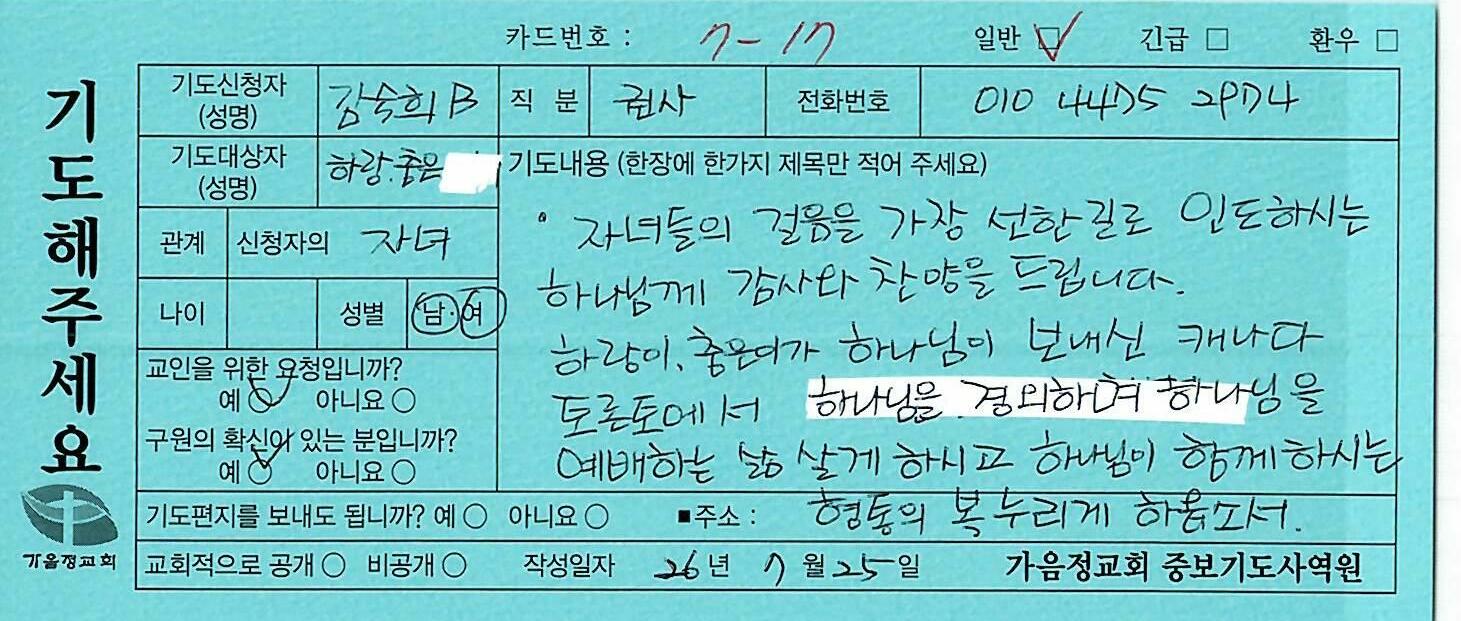 카드번호 : 7-17 일반 □ 긴급 □ 환우 □
기도해주세요
기도신청자 (성명) 김숙희B 직 분 권사 전화번호 010 4475 2974
기도대상자 (성명) 하랑.좋은
기도내용 (한장에 한가지 제목만 적어 주세요)
관계 신청자의 자녀
나이 성별 남·여
교인을 위한 요청입니까?
예 ○ 아니요 ○
구원의 확신이 있는 분입니까?
예 ○ 아니요 ○
자녀들의 걸음을 가장 선한길로 인도하시는
하나님께 감사와 찬양을 드립니다.
하랑이.좋은이가 하나님이 보내신 캐나다
토론토에서 하나님을 경외하며 하나님을
예배하는 삶 살게 하시고 하나님이 함께하시는
형통의 복 누리게 하옵소서.
기도편지를 보내도 됩니까? 예 ○ 아니요 ○ ■주소 :
교회적으로 공개 ○ 비공개 ○ 작성일자 26년 7월 25일 가음정교회 중보기도사역원
가음정교회